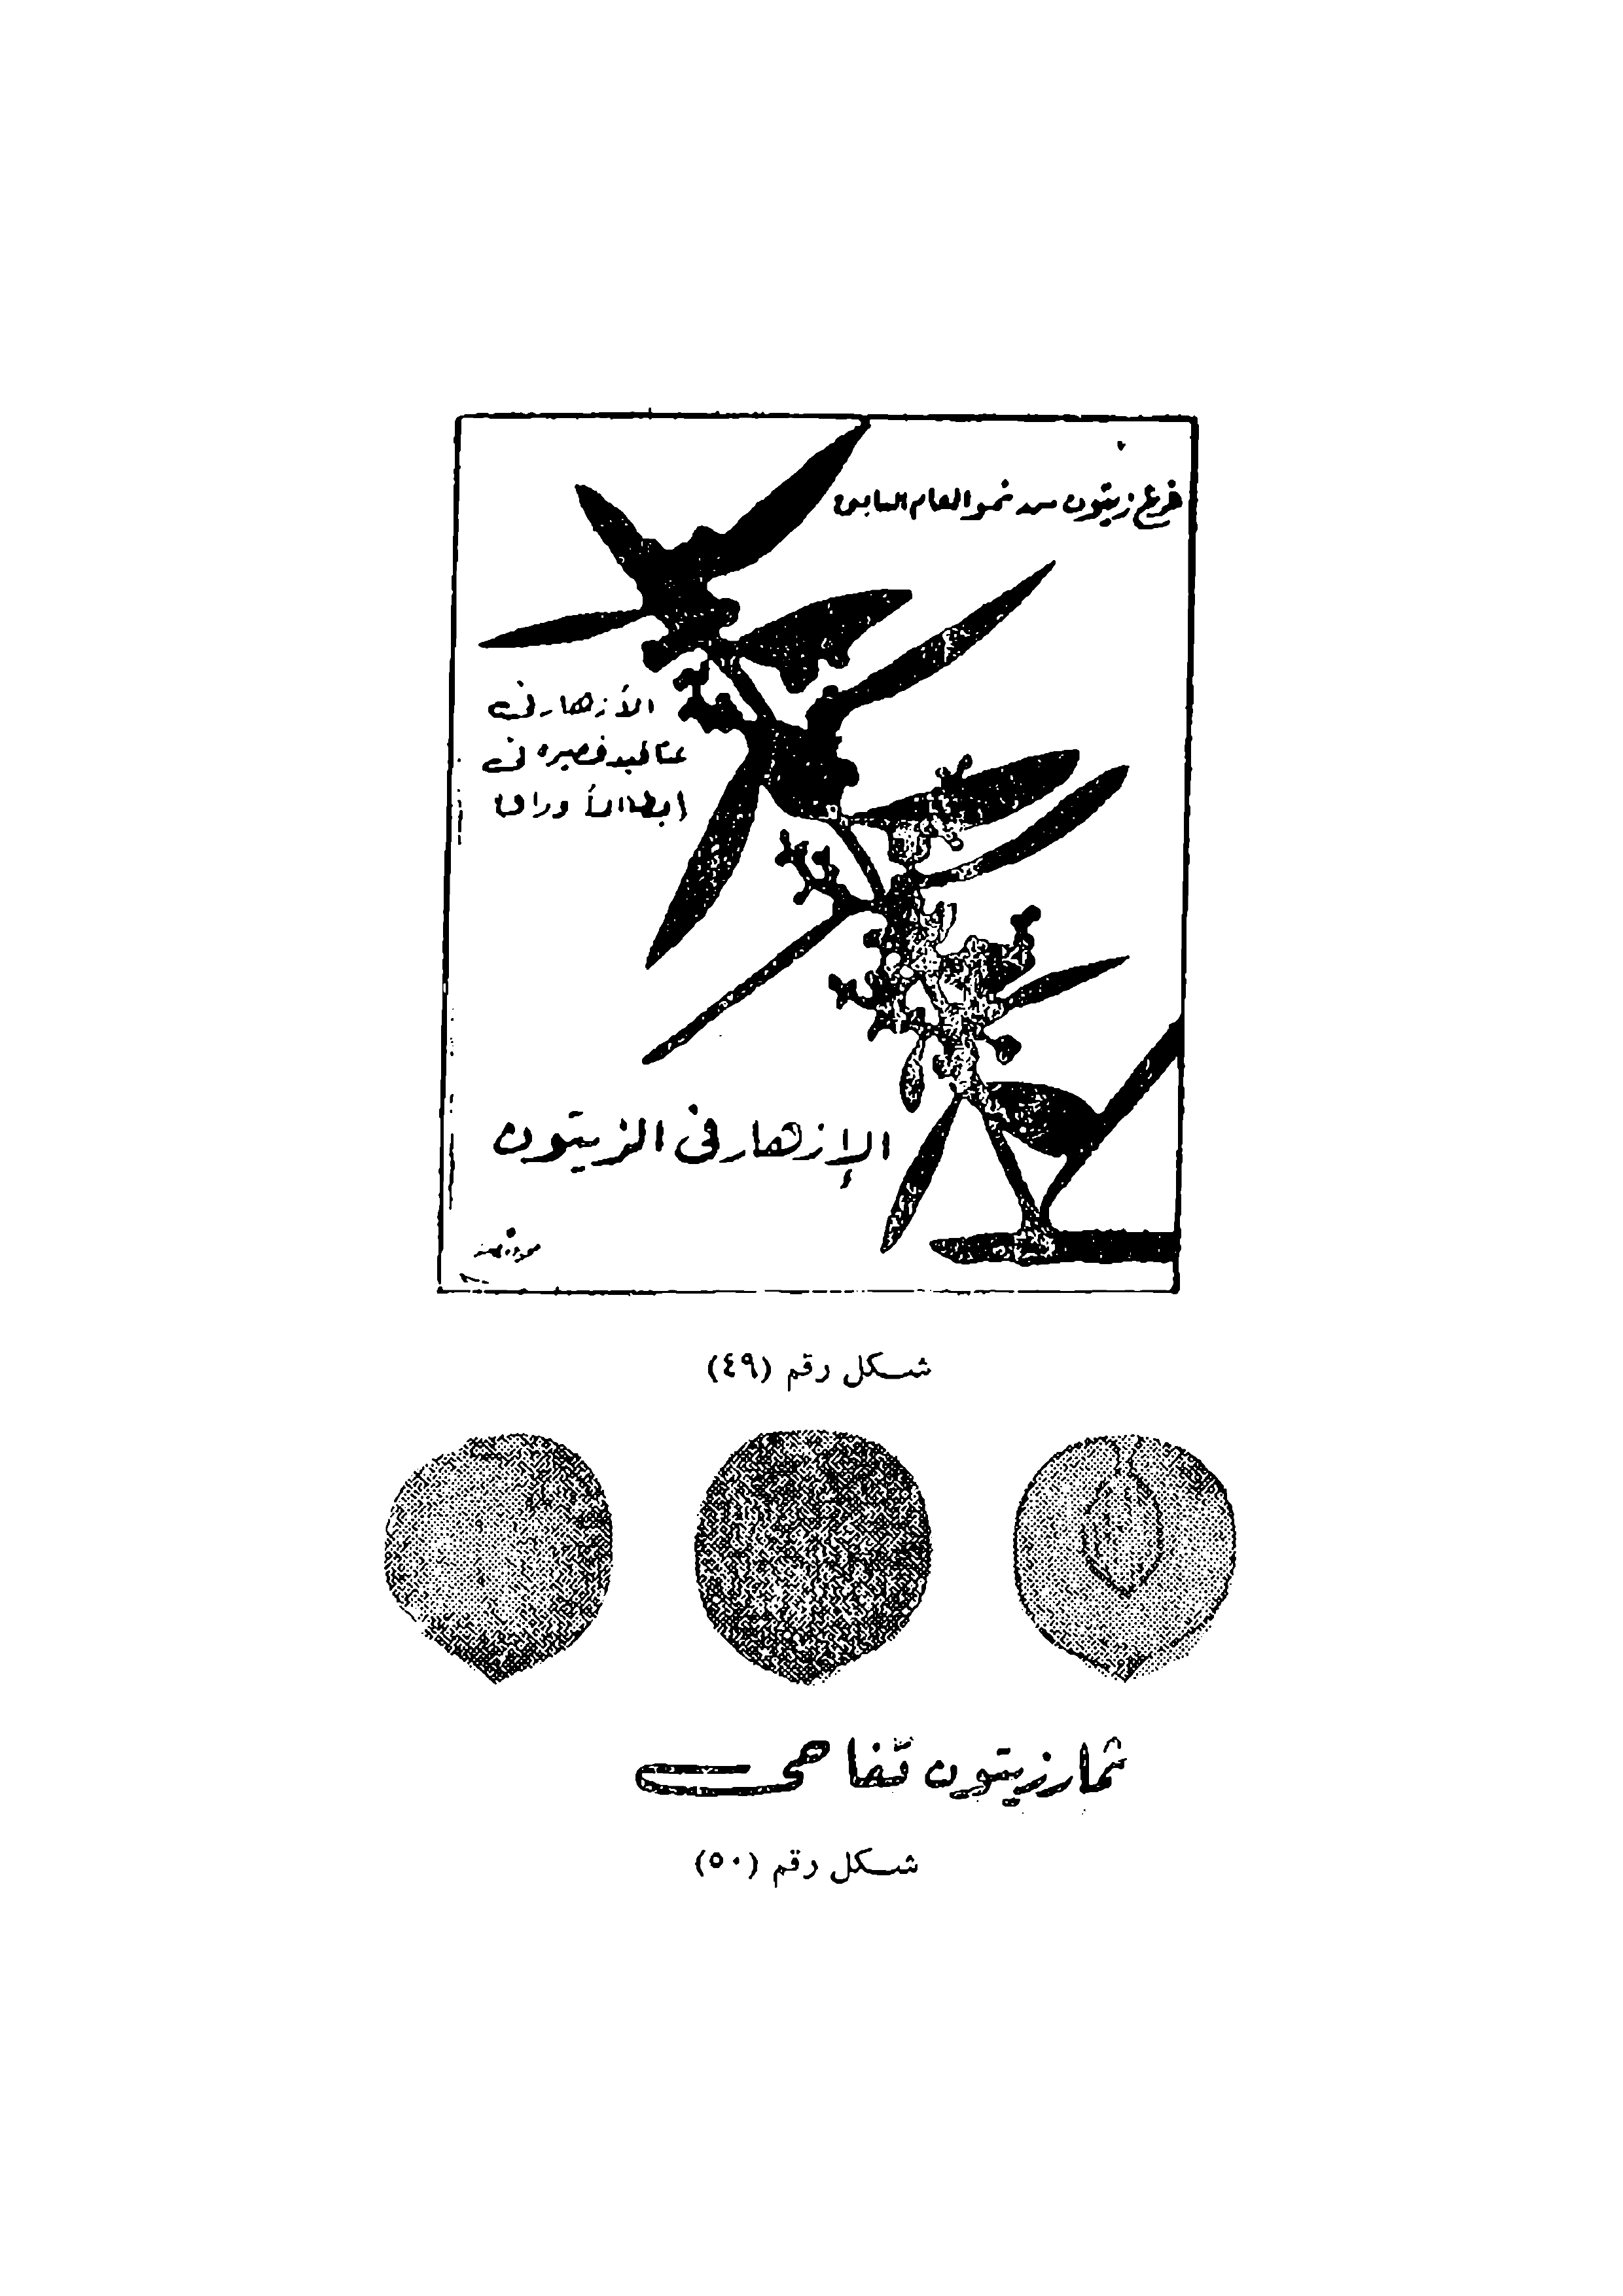 فرع زيتون من نمو العام السابق
الأزهار فى
عناقيد قصيره فى
إبط الأوراق
الإزهار فى الزيتون
شكل رقم (٤٩)
ثمار زيتون تفاحى
شكل رقم (٥٠)